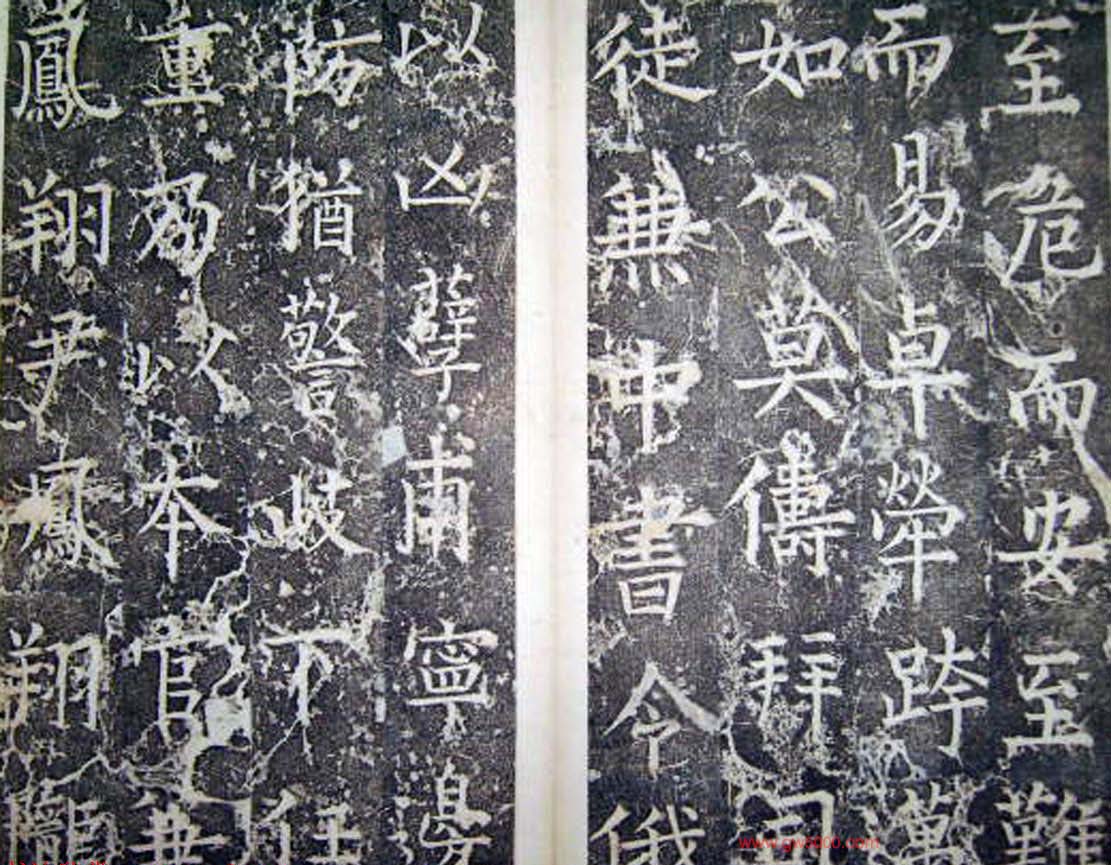 至危而安至難
而易卓犖跨萬
如公莫儔拜司
徒兼中書令俄
以凶孽甫寧邊
防猶警岐下任
重以本官兼
鳳翔尹鳳翔隴